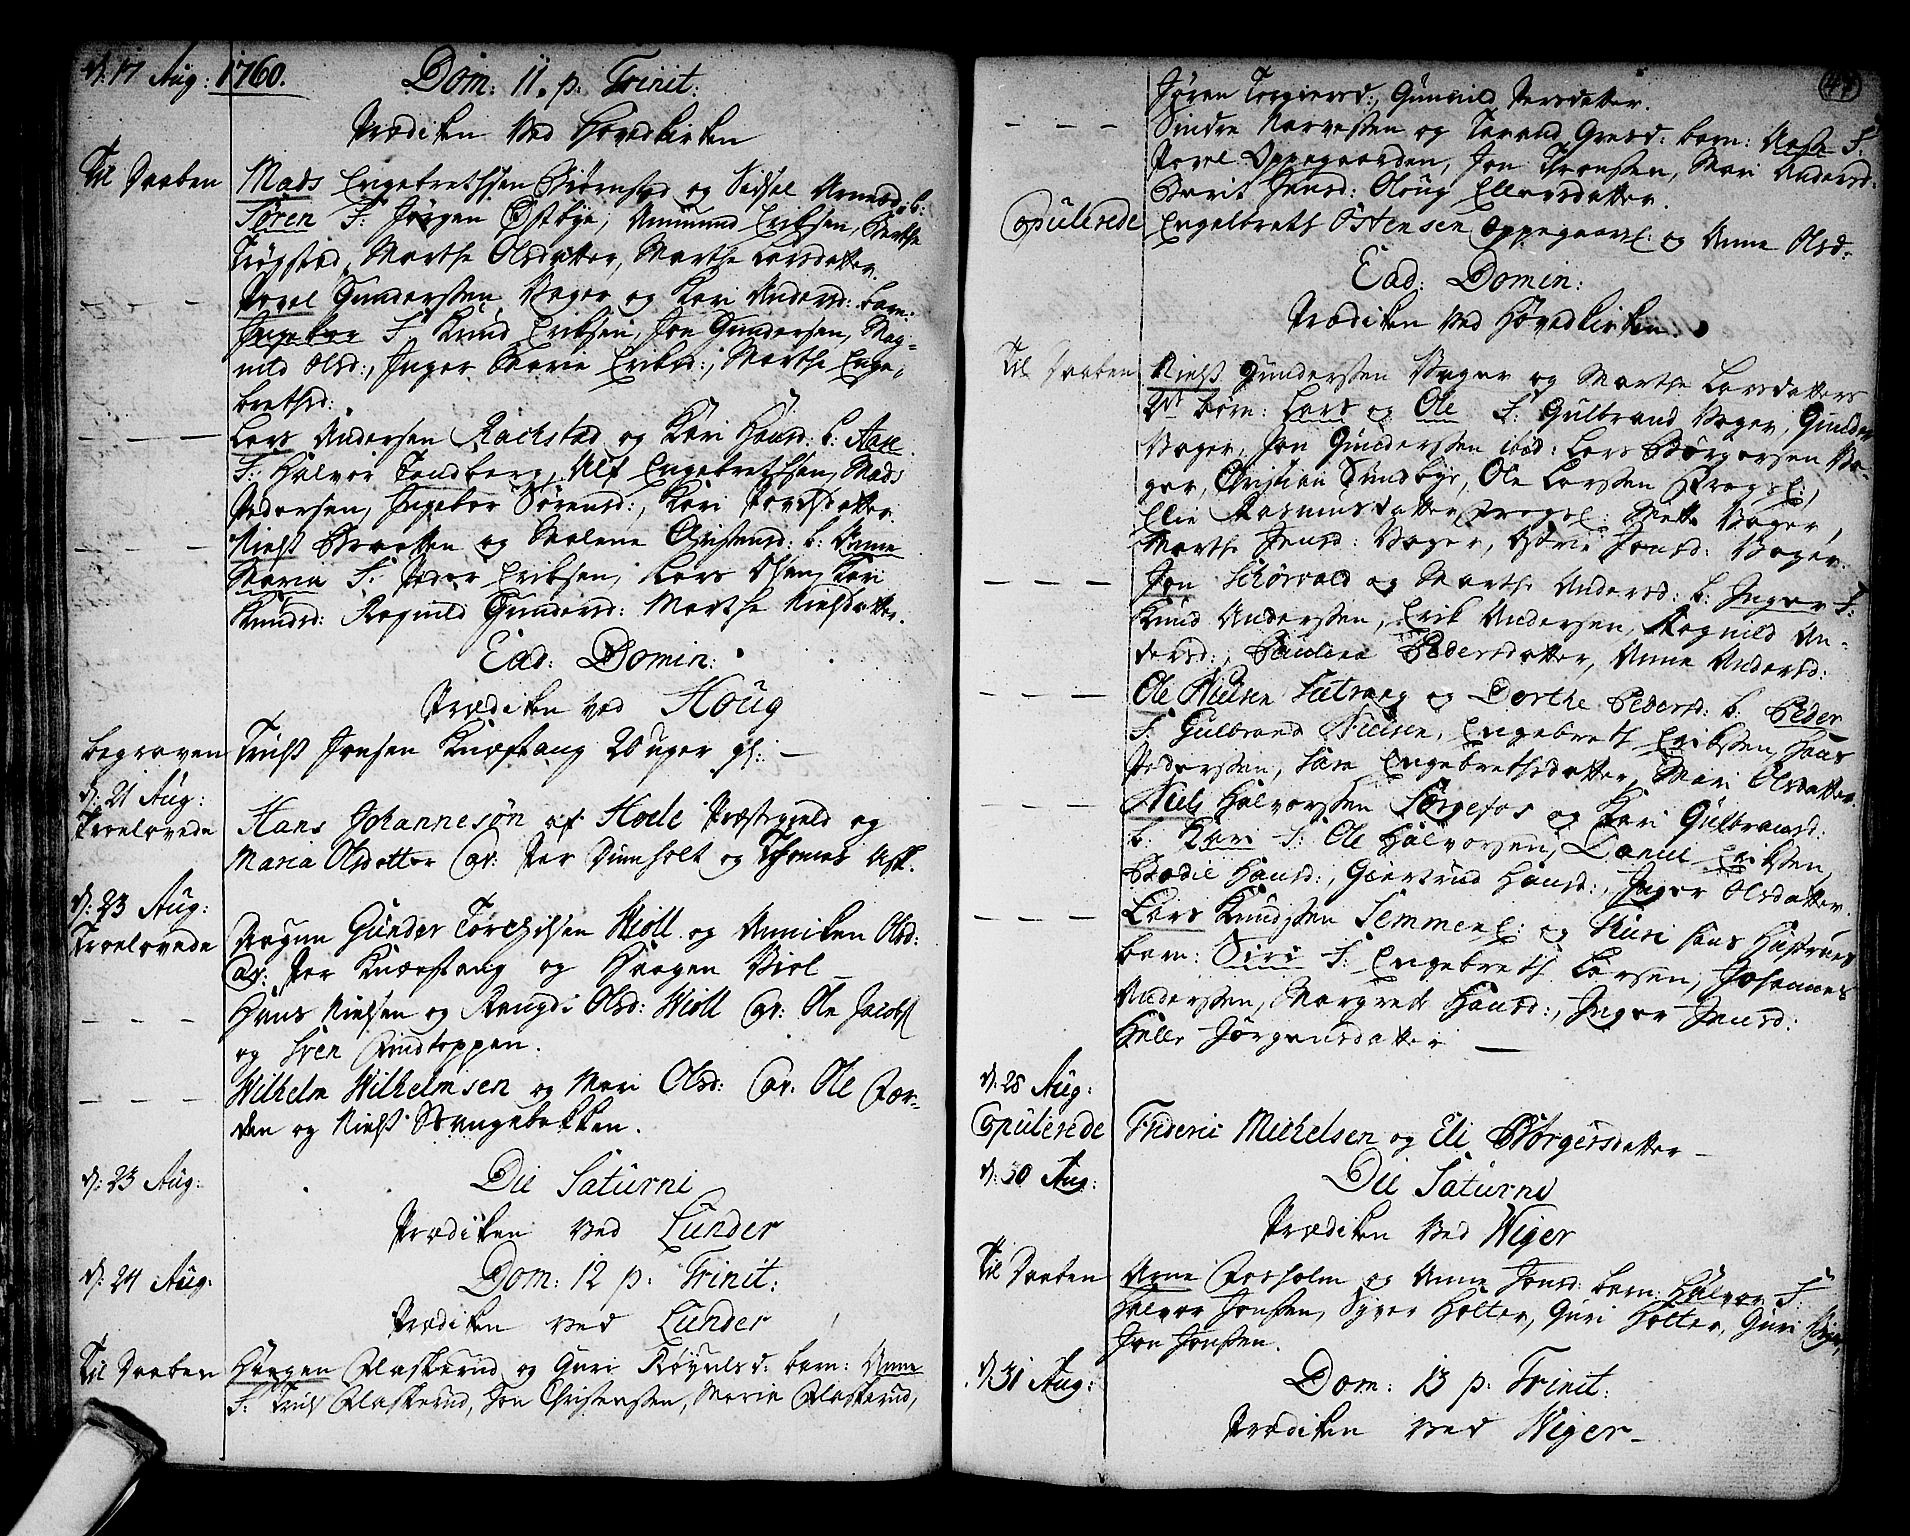 d: 17 Aug: 1760. Dom: 11. p. Trinit:
Prædiken ved Hovedkirken
Til Daaben Mads Engebrethsen Biørnstad og Sidsel Arnesd: b:
Søren F: Jørgen Østbye, Amund Eriksen, Marthe
Trøgstad, Marthe Olsdatter, Marthe Larsdatter.
— — — Povel Gundersen Vager og Kari Andersd: barn:
Ingebor F: Knud Eriksen, Jon Gundersen, Mag-
nild Olsd:, Inger Marie Eriksd:, Marthe Enge-
brethsd:
— — — Lars Andersen Rachstad og Kari Hansd: b: Aase
F: Halvor Tandberg, Ulf Engebrethsen, Mads
Pedersen, Ingebor Sørensd:, Kari Povelsdatter.
— — — Niels Braaten og Malene Christensd: b: Anne
Maria F: Peder Eriksen, Lars Olsen, Kari
Knudsd: Ragnild Gundersd: Marthe Nielsdatter.
Ead: Domin:
Prædiken ved Houg
Begraven Truls Jonsen Knæstang 20 uger gl: —
d: 21 Aug:
Troelovede Hans Johannesøn af Hoele Præstegjeld og
Maria Olsdatter Cav: Per Dumholt og Thomas Ask.
d: 23 Aug:
Troelovede Dragun Gunder Torchilsen Wiöll og Anniken Olsd:
Cav: Per Knæstang og Haagen Viol —
— — — Hans Nielsen og Rangdi Olsd: Wiöll Cav: Ole Jacobs
og Sven Rindtoppen.
— — — Wilhelm Wilhelmsen og Mari Olsd: Cav: Ole Fær-
den og Niels Stangebekken.
d: 23 Aug: Die Saturni
Prædiken ved Lunder
d: 24 Aug: Dom: 12 p: Trinit:
Prædiken ved Lunder
Til Daaben Haagen Flaskerud og Guri Røyulsd: barn: Anne
F: Truls Flaskerud, Jon Christensen, Maria Flaskerud,
47
Jøren Torgiersd:, Gunild Persdatter.
— — — Sindre Narvesen og Tarand Gresd: barn: Aase F:
Povel Oppegaarden, Jon Thronsen, Mari Andersd:
Berit Jensd: Oloug Ellensdatter.
Copulerede Engelbreth Østensen Oppegaarsl: og Anne Olsd:
Ead: Domin:
Prædiken ved Hovedkirken.
Til Daaben Niels Gundersen Vager og Marthe Larsdatters
2de børn: Lars og Ole F: Gulbrand Vager, Gunder
Vager, Jon Gundersen ibid: Lars Børgersen Va-
ger, Christian Sundbye, Ole Larsen Fragsl:,
Elie Rasmusdatter Fragsl: Mette Vager,
Marthe Jensd: Vager, Børte Jonsd: Vager.
— — — Jon Schørvald og Marthe Andersd: b: Inger F:
Knud Andersen, Erik Andersen, Ragnild An-
dersd:, Paulina Pedersdatter, Anne Andersd:
— — — Ole Nielsen Setrang og Dorthe Pedersd: b: Peder
F: Gulbrand Nielsen, Engebreth Eriksen, Hans
Pedersen, Sara Engebrethsdatter, Mari Olsdatter
— — — Niels Halvorsen Sørgefos og Kari Gulbransd:
b: Kari F: Ole Halvorsen, Daniel Eriksen,
Bodil Hansd:, Giertrud Hansd:, Inger Olsdatter.
— — — Lars Knudsen Semmenl: og Kiersti Hans Hustrues
barn: Siri F: Engebreth Larsen, Johannes
Andersen, Margrete Hansd:, Inger Jensd:
Helle Jørgensdatter —
d: 28 Aug:
Copulerede Frideric Michelsen og Eli Børgersdatter —
d: 30 Aug: Die Saturni
Prædiken ved Wiger
Til Daaben Arne Fosholm og Anne Jonsd: barn: Halvor F:
Halvor Jonsen, Syver Holter, Guri Holter, Guri Viger,
Jon Jonsen.
d: 31 Aug: Dom: 13 p. Trinit:
Prædiken ved Wiger —